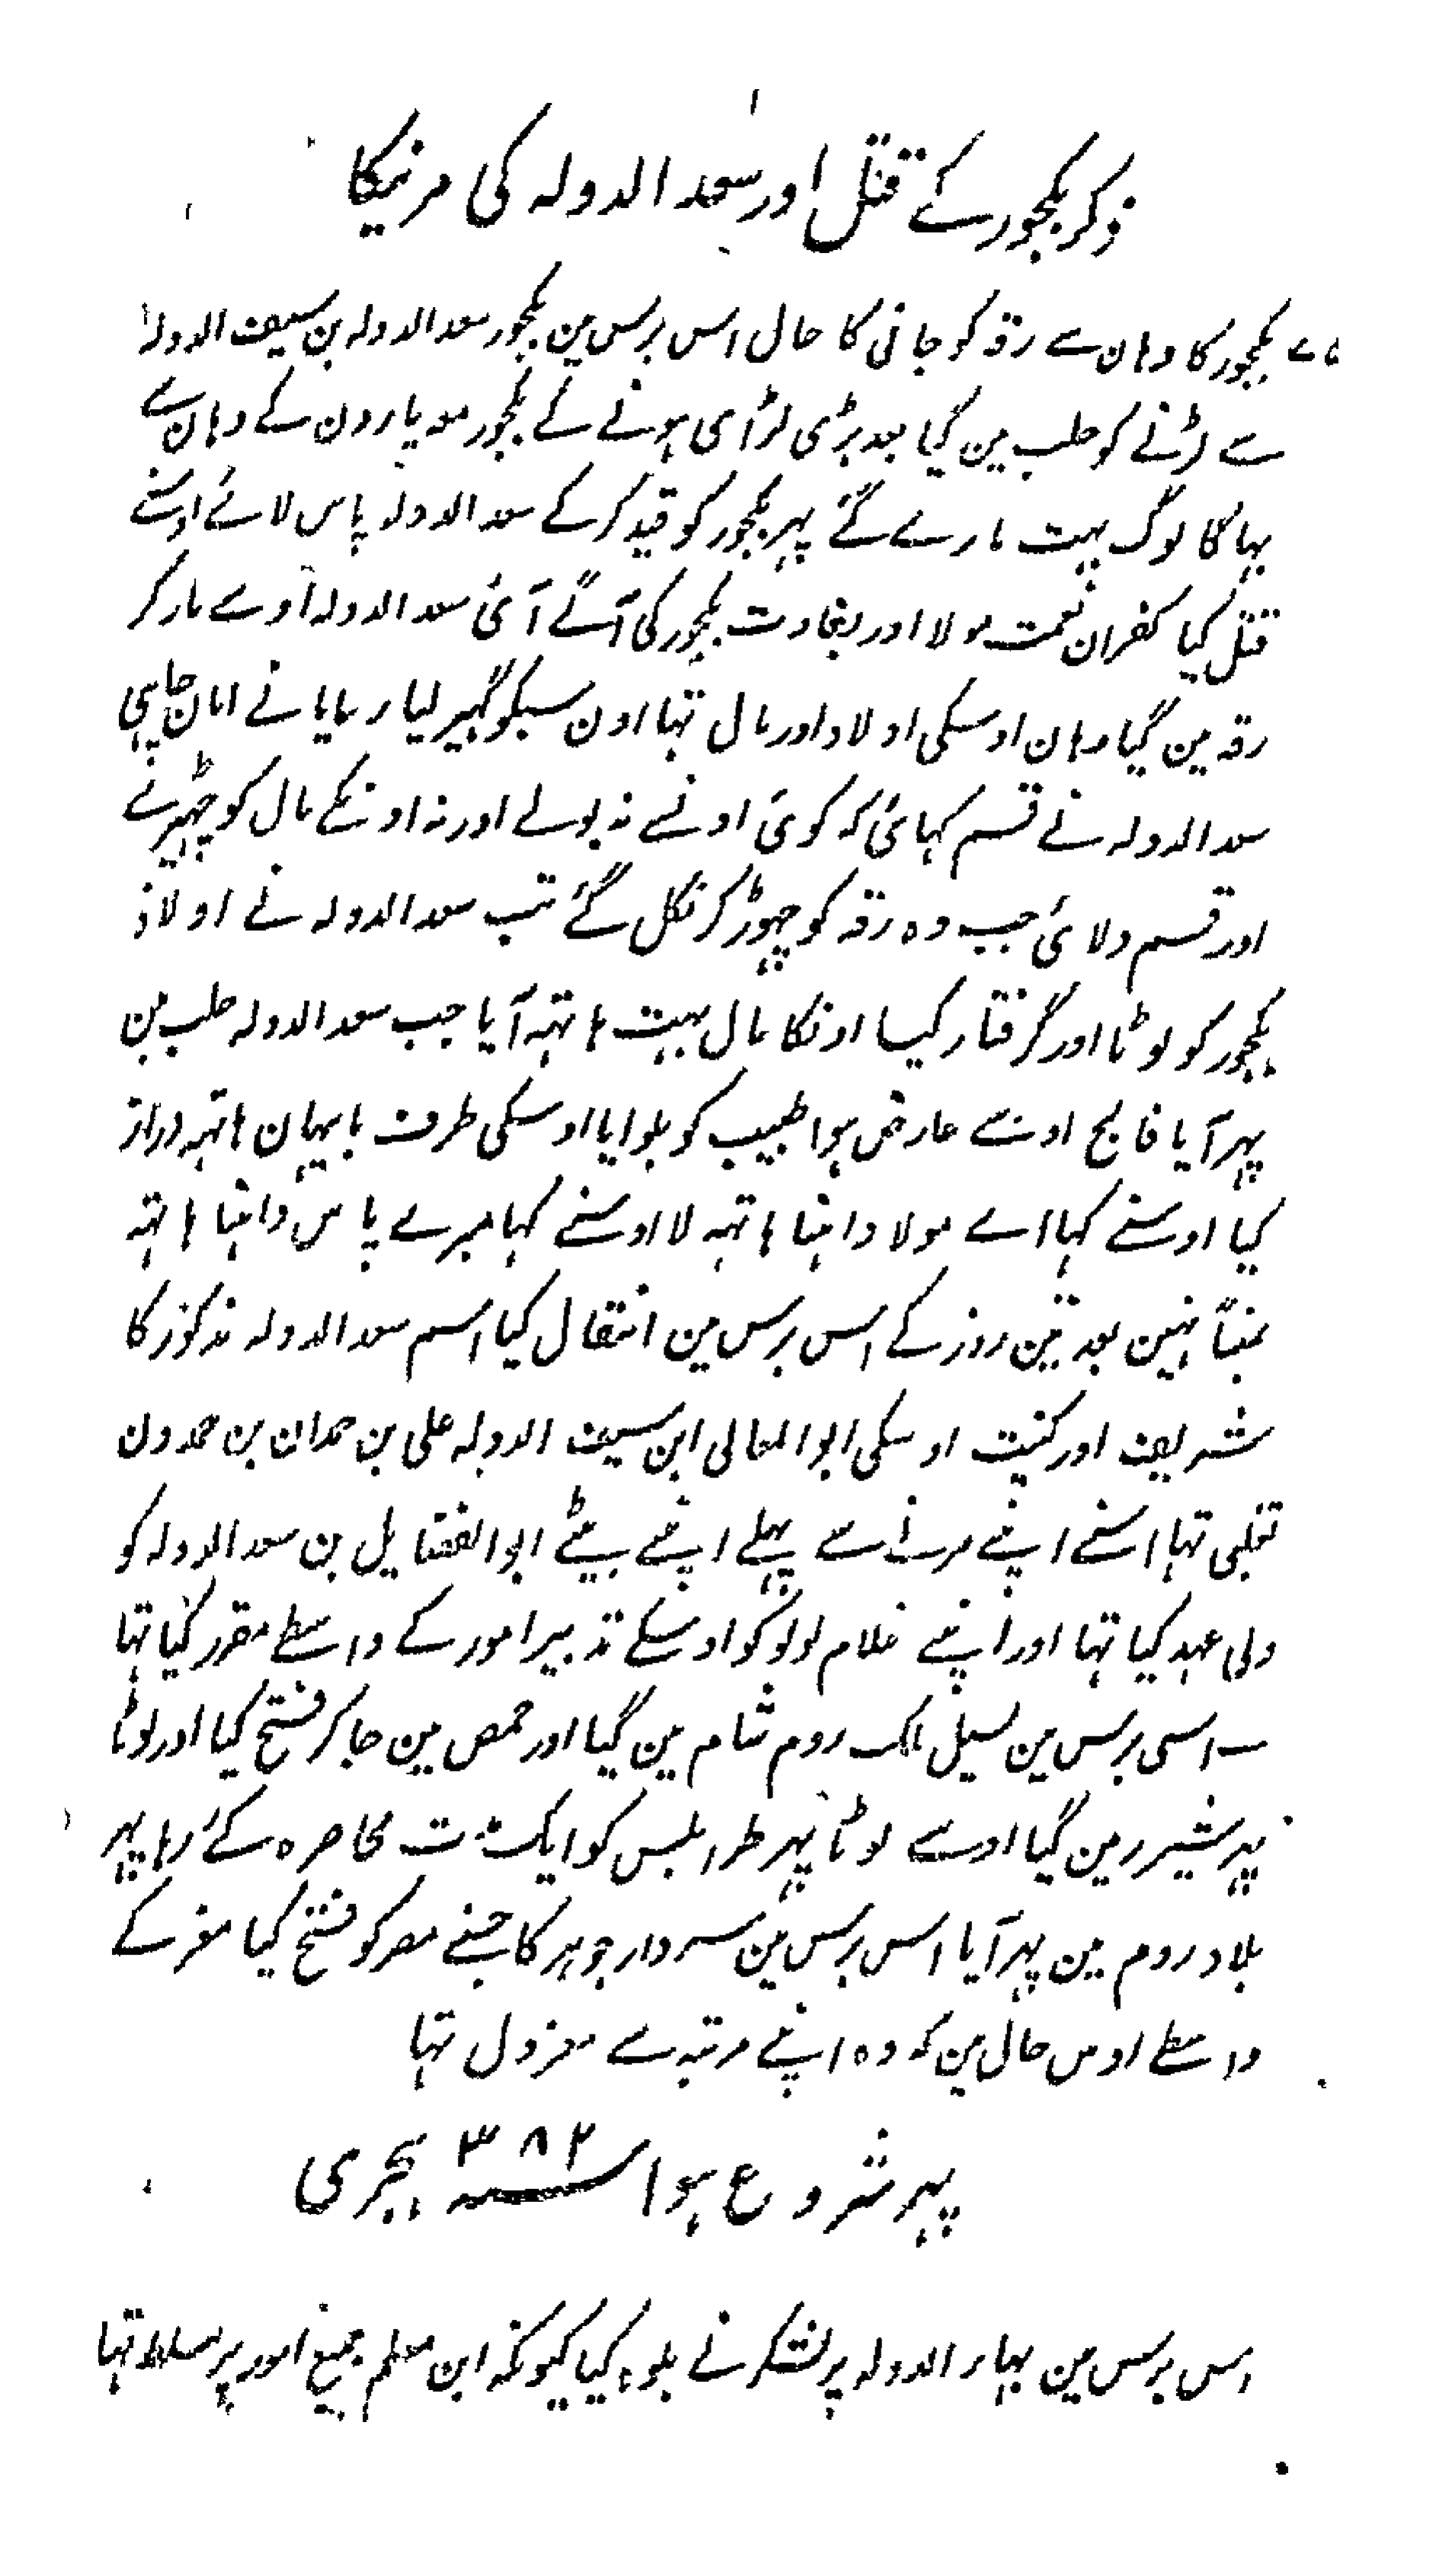 ذکر بکجور کے قتل اور سعد الدولہ کی مرنیکا
بکجور کا وہان سے رقہ کو جانی کا حال اس برس مین بکجور سعد الدولہ بن سیف الدولہ
سے لڑنے کو حلب مین گیا بعد بڑی لڑای ہونے کے بکجور معہ یارون کے وہان سے
بہاگا لوگ بہت مارے گئے پہر بکجور کو قید کر کے سعد الدولہ پاس لائے اوسنے
قتل کیا کفران نعمت مولا اور بغاوت بکجور کی آگے آئ سعد الدولہ اوسے مار کر
رقہ مین گیا وہان اوسکی اولاد اور مال تہا اون سبکو گہیر لیا رعایا نے امان چاہی
سعد الدولہ نے قسم کہائ کہ کوئ اونسے نہ بولے اور نہ اونکے مال کو چہیڑے
اور قسم دلائ جب وہ رقہ کو چہوڑ کر نکل گئے تب سعد الدولہ نے اولاد
بکجور کو لوٹا اور گرفتار کیا اونکا مال بہت ہاتہہ آیا جب سعد الدولہ حلب مین
پہر آیا فالج اوسے عارض ہوا طبیب کو بلوایا اوسکی طرف بایہان ہاتہہ دراز
کیا اوسنے کہا اے مولا داہنا ہاتہہ لا اوسنے کہا میرے پاس داہنا ہاتہہ
نہین بعد تین روز کے اس برس مین انتقال کیا اسم سعد الدولہ مذکور کا
شریف اور کنیت اوسکی ابو المعالی ابن سیف الدولہ علی بن حمدان بن حمدون
تغلبی تہا اسنے اپنے مرنے سے پہلے اپنے بیٹے ابو الفضایل بن سعد الدولہ کو
ولی عہد کیا تہا اور اپنے غلام لولو کو اوسکے تدبیر امور کے واسطے مقرر کیا تہا
اسی برس مین بسیل ملک روم شام مین گیا اور حمص مین جا کر فتح کیا اور لوٹا
پہر شیزر مین گیا اوسے لوٹا پہر طرابلس کو ایک مدت محاصرہ کئے رہا پہر
بلاد روم مین پہر آیا اس برس مین سردار جوہر کا جسنے مصر کو فتح کیا معز کے
واسطے اوس حال مین کہ وہ اپنے مرتبہ سے معزول تہا
پہر شروع ہوا سنہ ۳۸۲ ہجری
اس برس مین بہاء الدولہ پر لشکر نے بلوہ کیا کیونکہ ابن معلم جمیع امور پر مسلط تہا